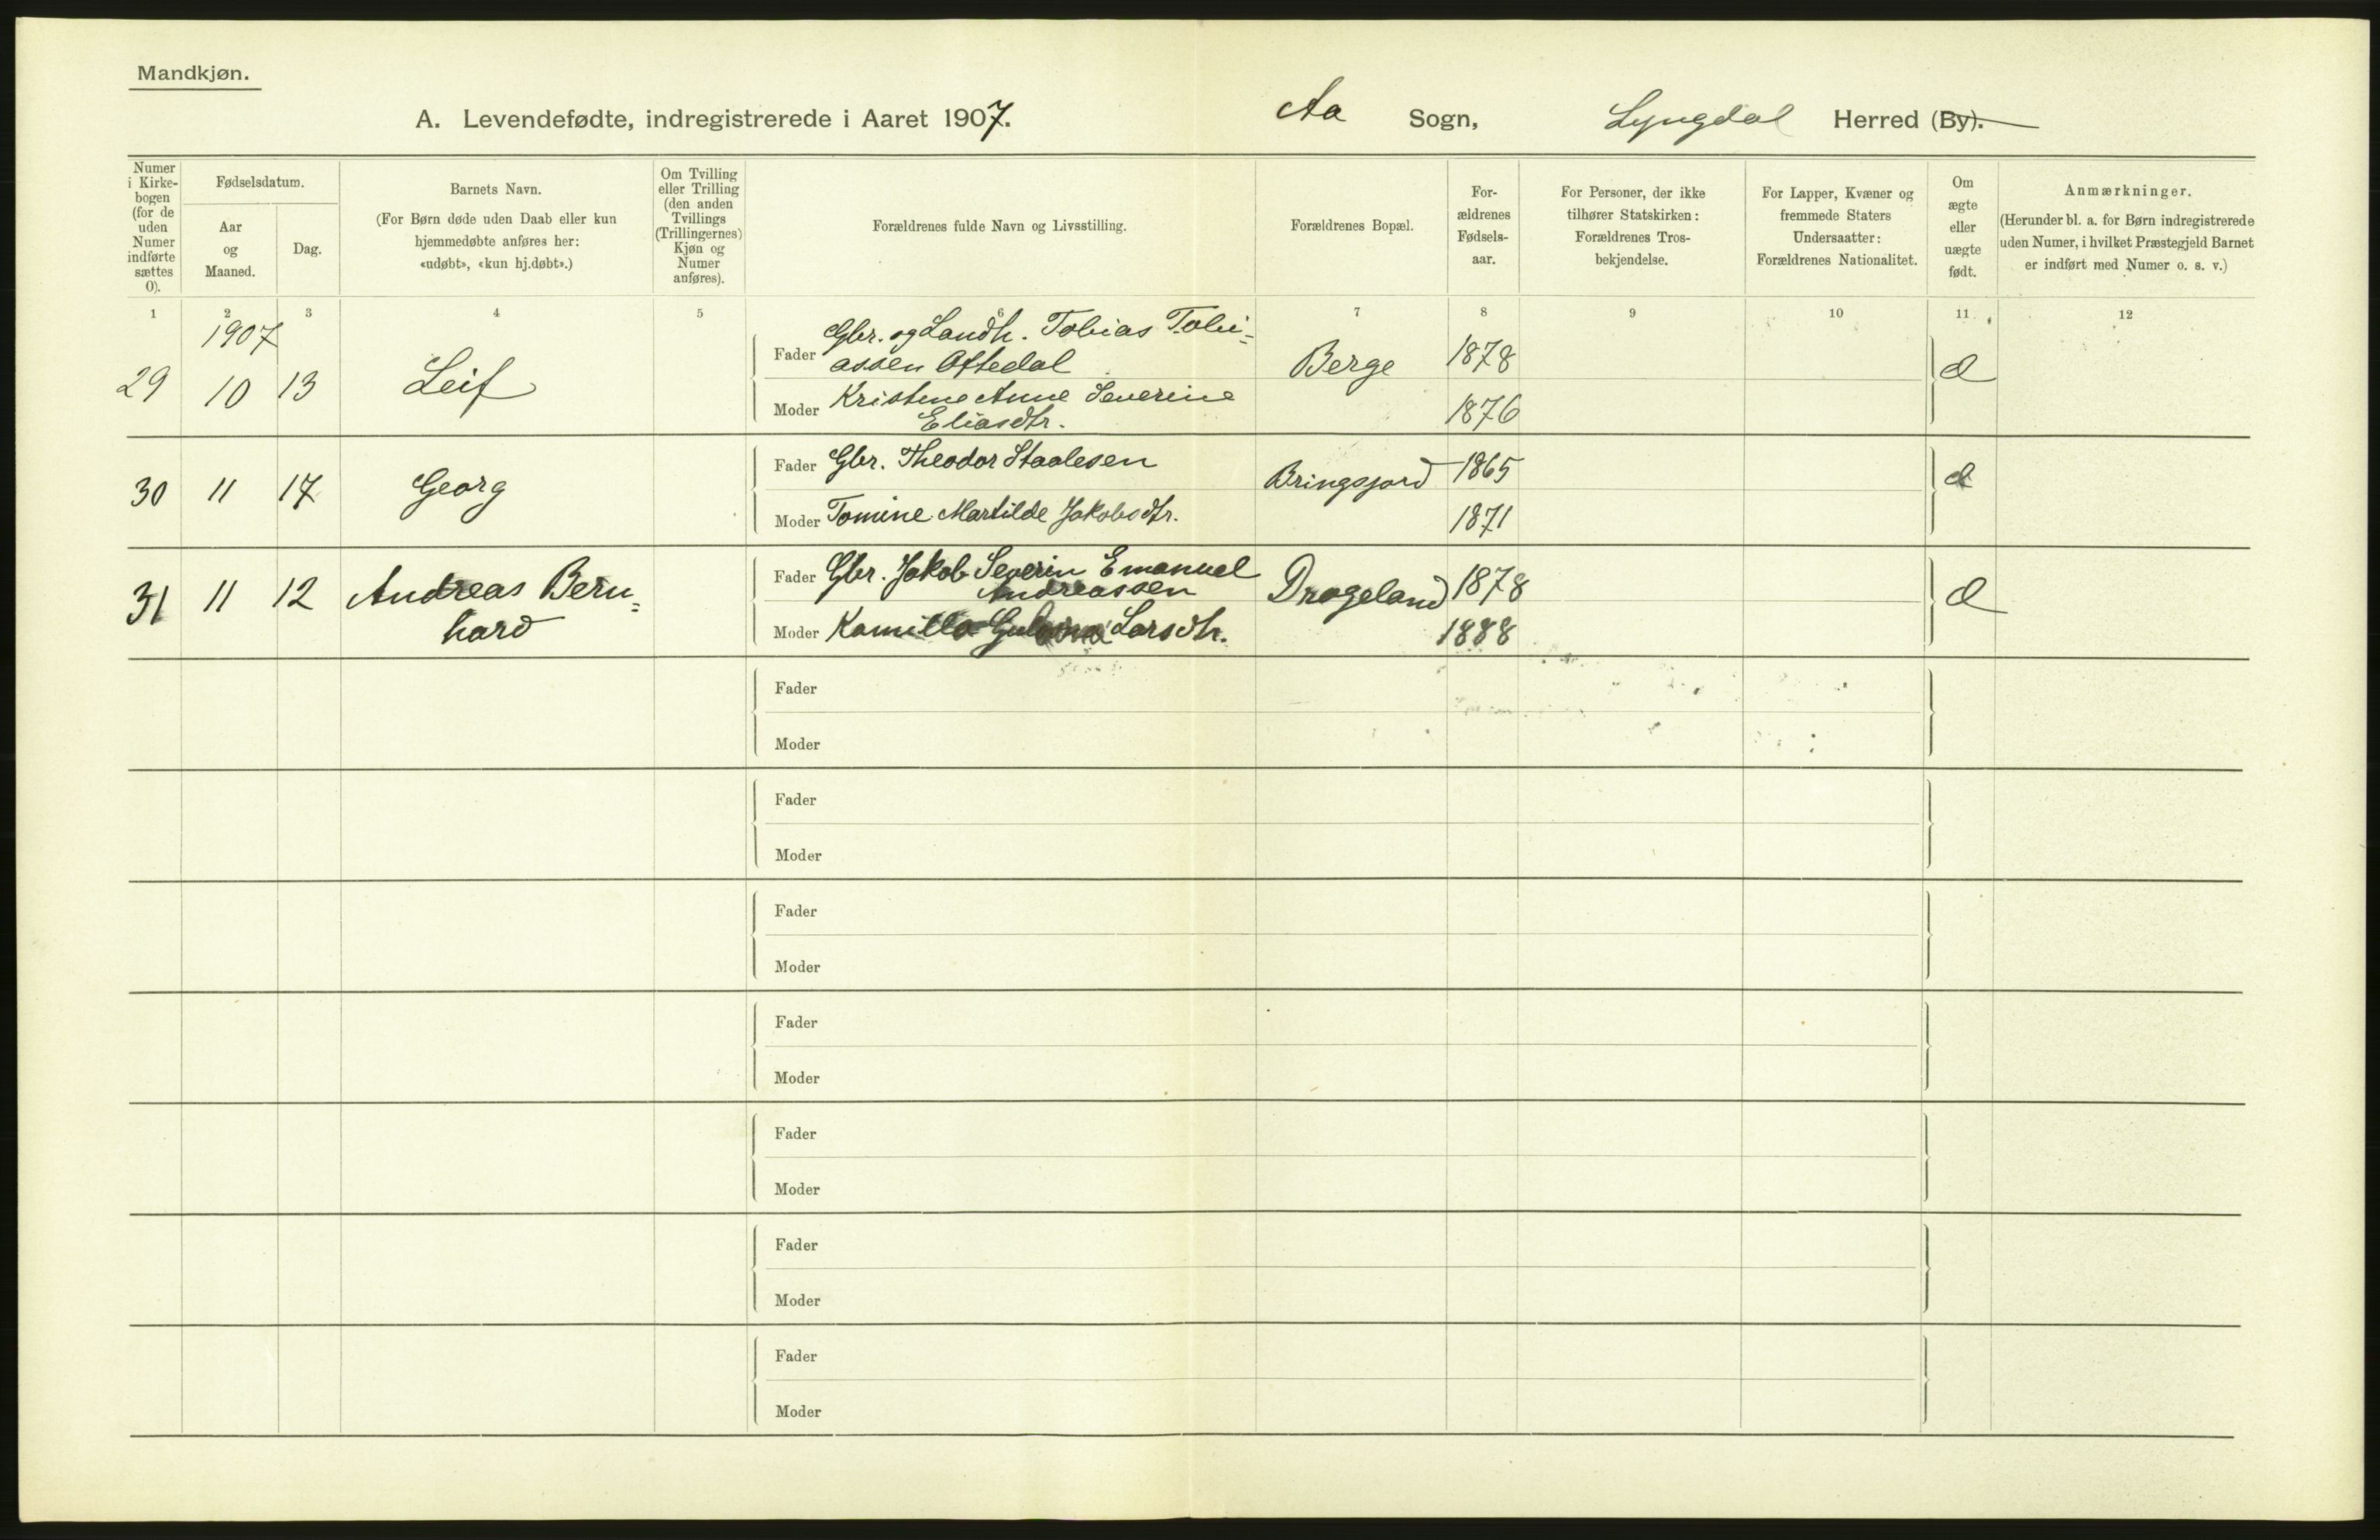 Mandkjøn.
A. Levendefødte, indregistrerede i Aaret 1907. Aa Sogn, Lyngdal Herred (By).
Numer i Kirkebogen (for de uden Numer indførte sættes 0).
Fødselsdatum.
Aar og Maaned.
Dag.
Barnets Navn.
(For Børn døde uden Daab eller kun
hjemmedøbte anføres her:
«udøbt», «kun hj.døbt».)
Om Tvilling
eller Trilling
(den anden
Tvillings
(Trillingernes)
Kjøn og
Numer
anføres).
Forældrenes fulde Navn og Livsstilling.
Forældrenes Bopæl.
For-
ældrenes
Fødsels-
aar.
For Personer, der ikke
tilhører Statskirken:
Forældrenes Tros-
bekjendelse.
For Lapper, Kvæner og
fremmede Staters
Undersaatter:
Forældrenes Nationalitet.
Om
ægte
eller
uægte
født.
Anmærkninger.
(Herunder bl. a. for Børn indregistrerede
uden Numer, i hvilket Præstegjeld Barnet
er indført med Numer o. s. v.)
1 2 3 4 5 6 7 8 9 10 11 12
1907
29 10 13 Leif
Fader Gbr. og Landh. Tobias Tobi-
assen Oftedal Berge 1878
Moder Kristine Anne Severine
Eliasdtr. 1876
30 11 17 Georg
Fader Gbr. Theodor Staalesen Bringsjord 1865
Moder Tomine Martilde Jakobsdtr. 1871
31 11 12 Andreas Bern-
hard
Fader Gbr. Jakob Severin Emanuel
Andreassen Drageland 1878
Moder Kamilla Larsdtr. 1888
Fader
Moder
Fader
Moder
Fader
Moder
Fader
Moder
Fader
Moder
Fader
Moder
Fader
Moder